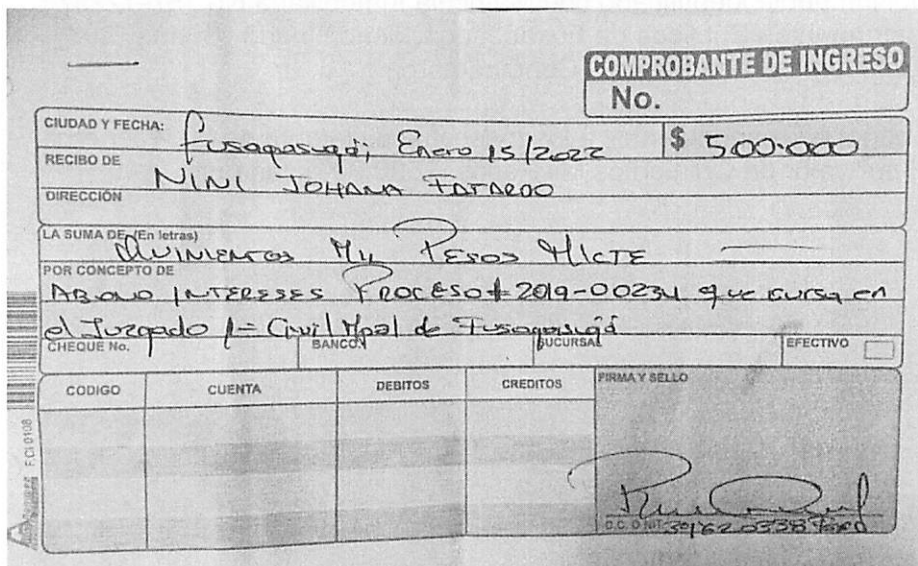 COMPROBANTE DE INGRESO
No.
CIUDAD Y FECHA: Fusagasugá, Enero 15/2022 $ 500.000
RECIBO DE NINI JOHANA FAJARDO
DIRECCIÓN
LA SUMA DE (En letras) QUINIENTOS MIL PESOS M/CTE
POR CONCEPTO DE
ABONO INTERESES PROCESO # 2019-00234 que cursa en
el Juzgado 1= Civil Mpal de Fusagasugá
CHEQUE No. BANCO SUCURSAL EFECTIVO
CODIGO CUENTA DEBITOS CREDITOS FIRMA Y SELLO
C.C. O NIT 39620338
F.CI 0108